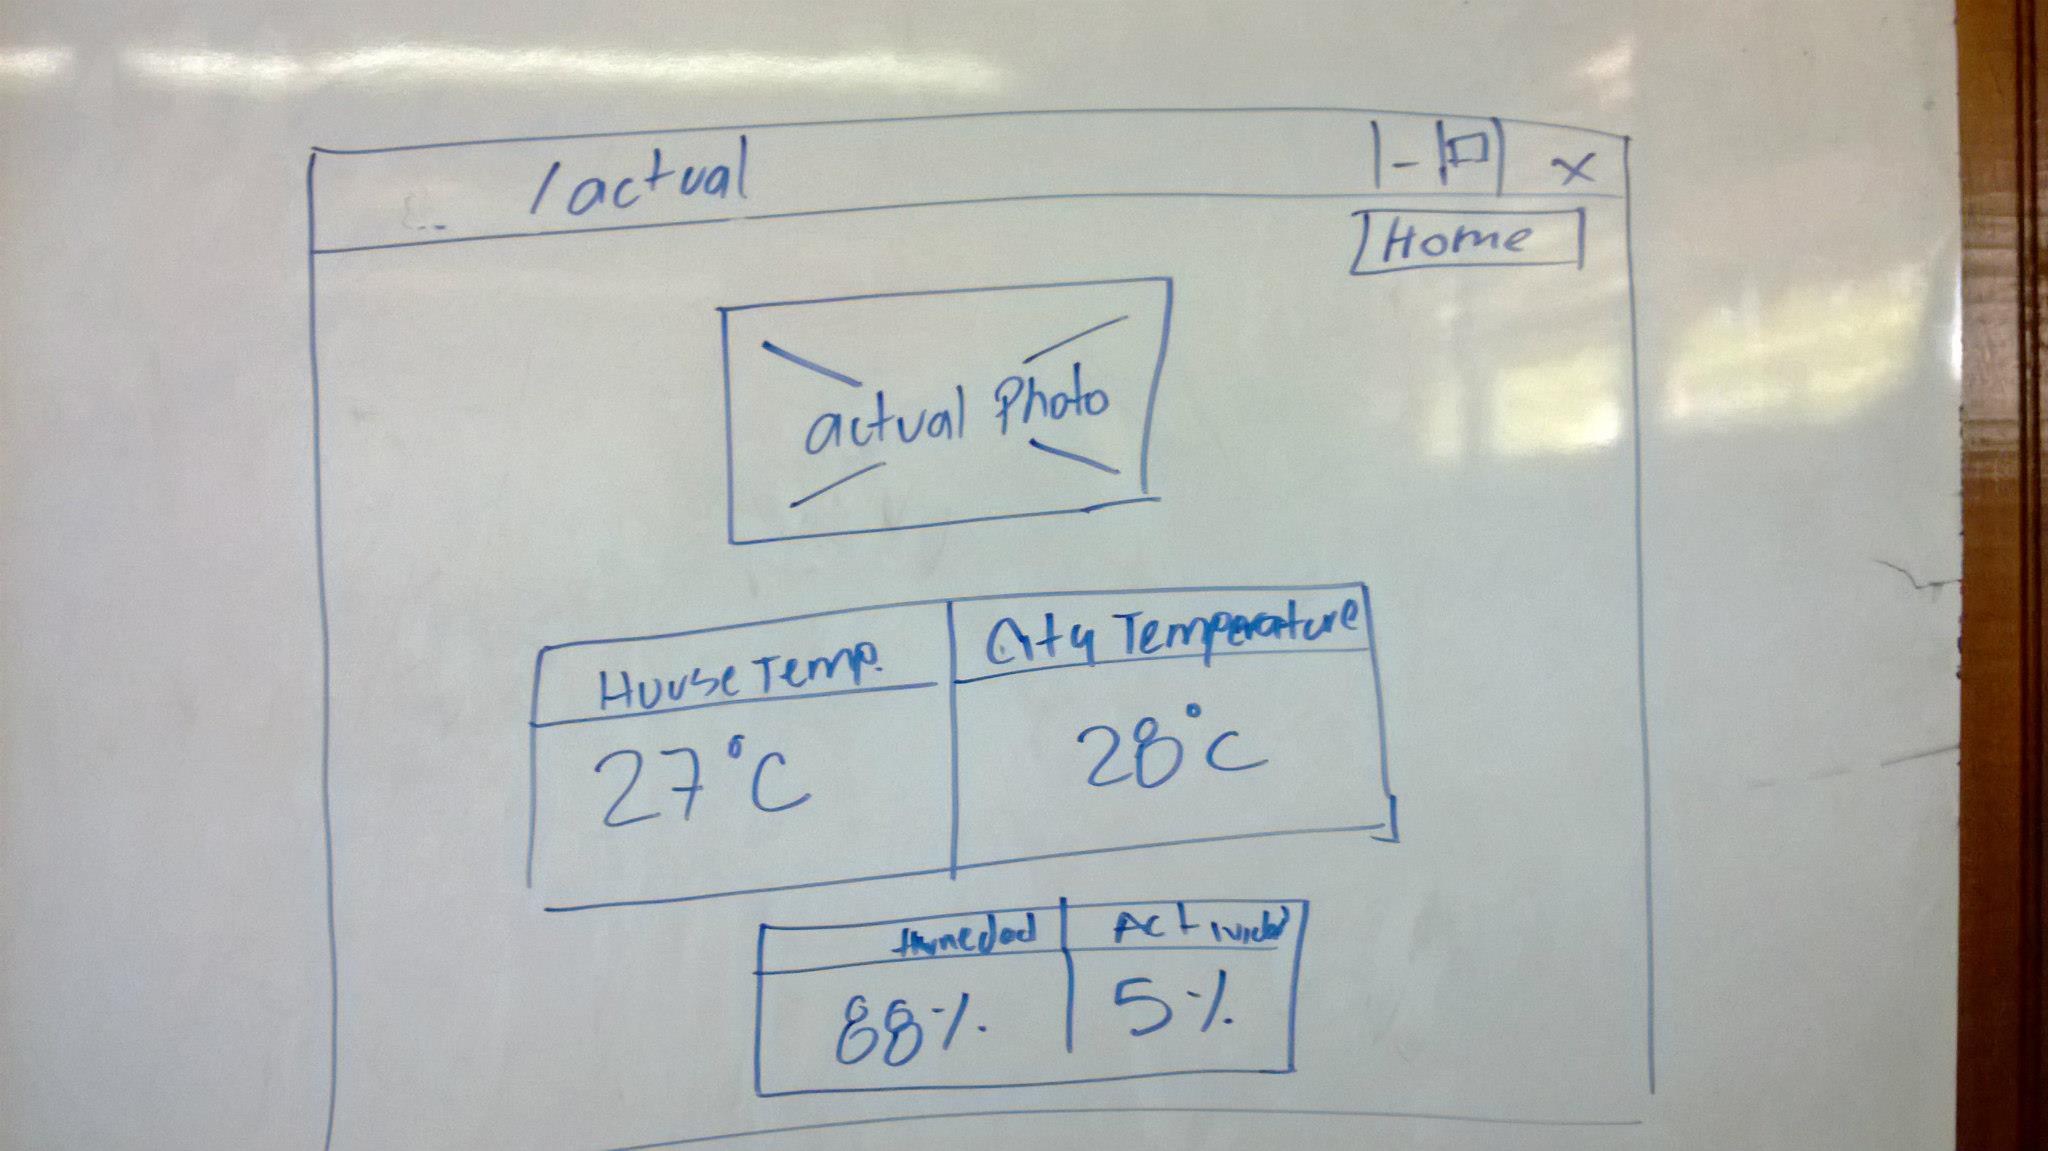 /actual
- x
Home
actual Photo
House Temp. City Temperature
27°C 28°C
Humedad Actividad
88% 5%